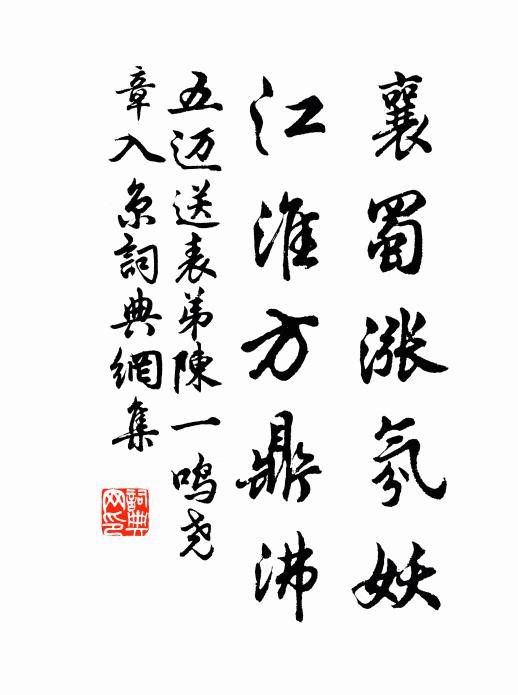 襄蜀漲氛妖
江淮方鼎沸
五迈送表弟陳一鸣尧
章入京詞典網集
詞典网印